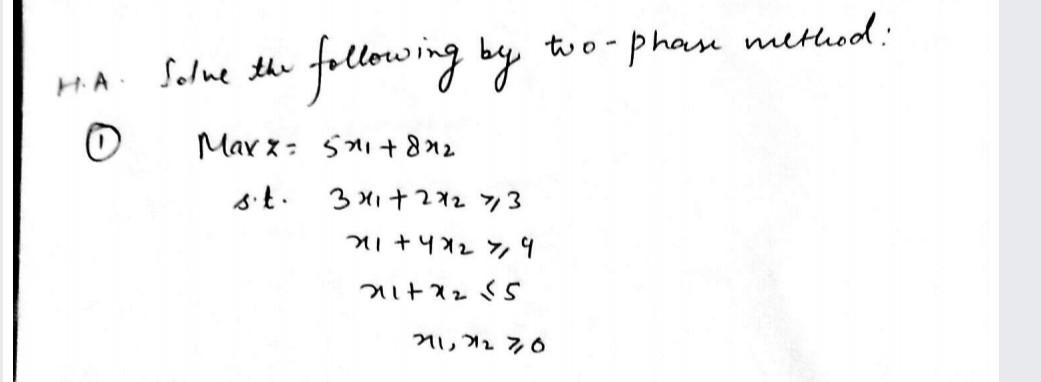 H.A. Solve the following by two-phase method:
① Max z = 5x1 + 8x2
s.t. 3x1 + 2x2 ≥ 3
x1 + 4x2 ≥ 4
x1 + x2 ≤ 5
x1, x2 ≥ 0